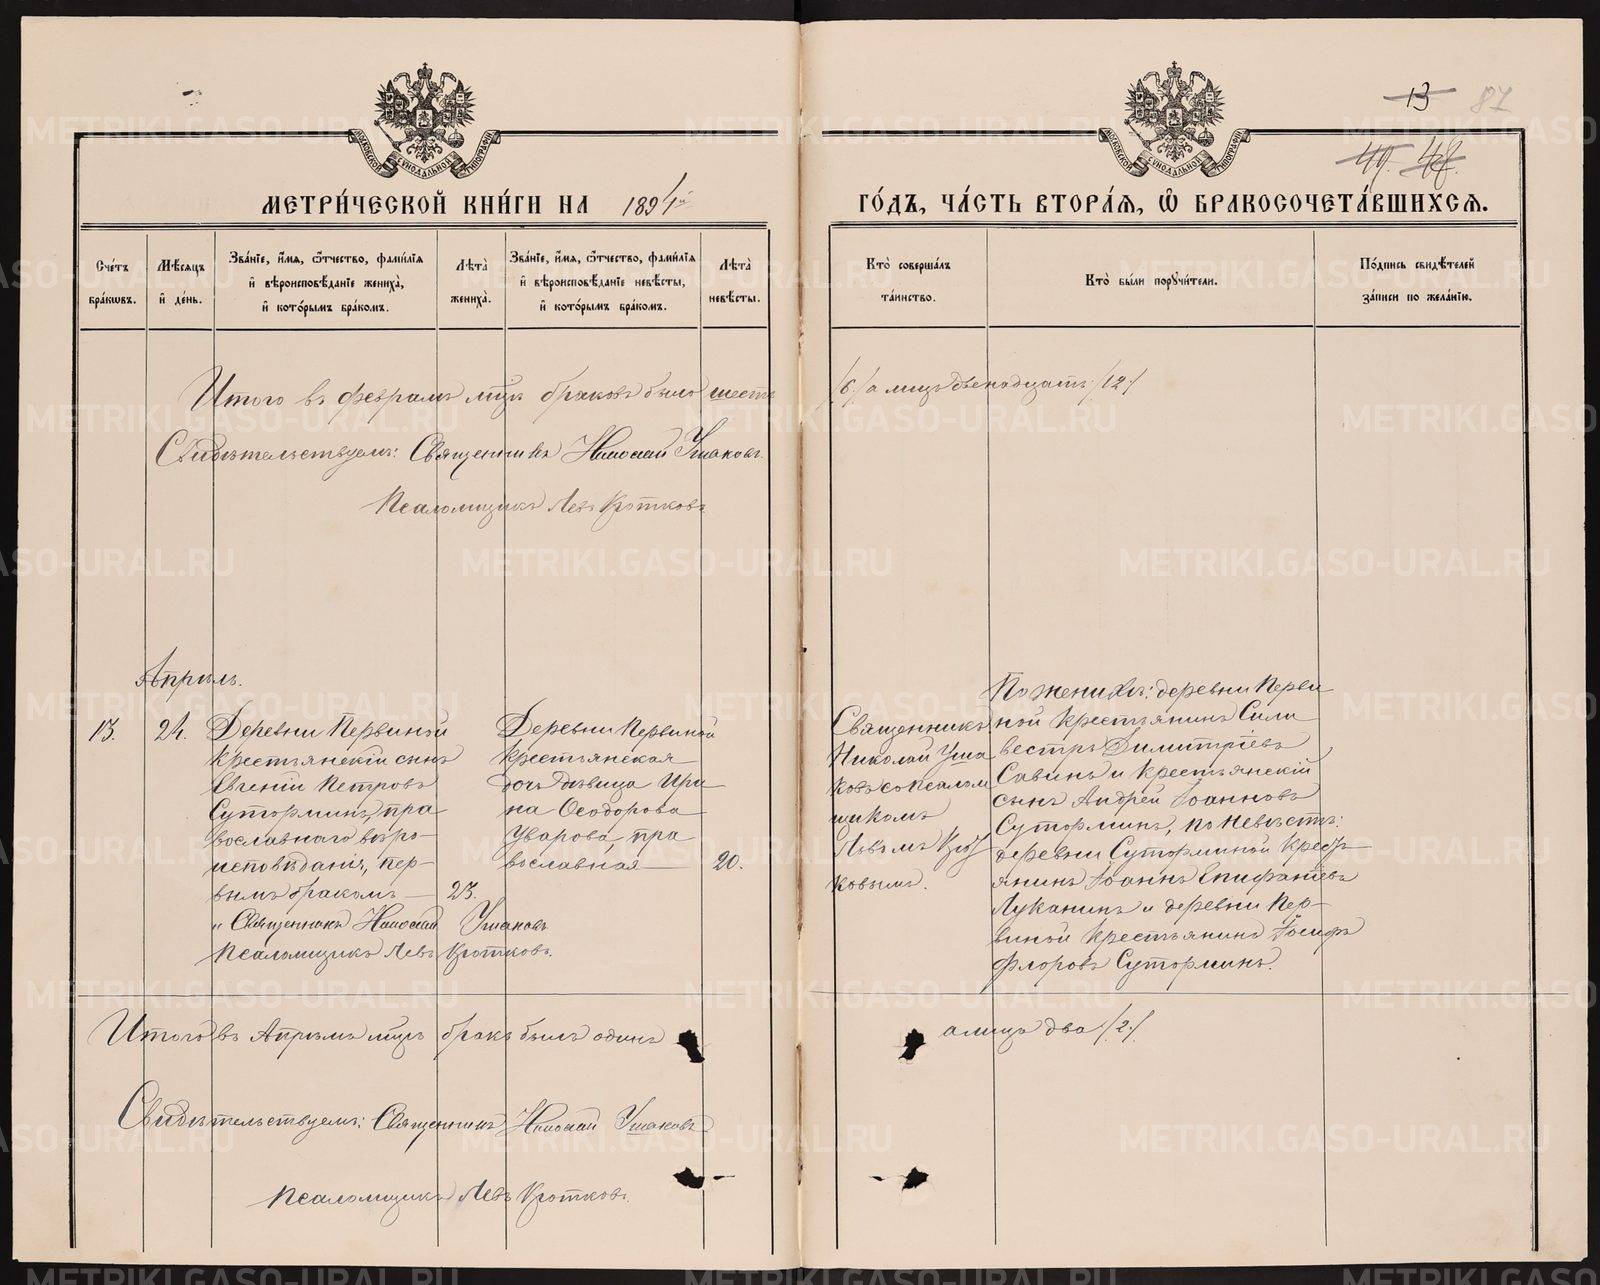 13 87
49. 48.
МЕТРИ́ЧЕСКОЙ КНИ́ГИ НА 1894й
ГО́ДЪ, ЧА́СТЬ ВТОРА́Я, Ѽ БРАКОСОЧЕТА́ВШИХСЯ.
Сче́тъ бра́кωвъ.
Мѣ́сяцъ и҆ де́нь.
Зва́нїе, и҆́мя, ѻ҆́тчество, фами́лїя
и҆ вѣроисповѣ́данїе жениха̀,
и҆ кото́рымъ бра́комъ.
Лѣта̀ жениха̀.
Зва́нїе, и҆́мя, ѻ҆́тчество, фами́лїя
и҆ вѣроисповѣ́данїе невѣ́сты,
и҆ кото́рымъ бра́комъ.
Лѣта̀ невѣ́сты.
Кто̀ соверша́лъ
та́инство.
Кто̀ бы́ли порꙋчи́тели.
По́дпись свидѣ́телей
за́писи по жела́нїю.
Итого въ Февралѣ мцѣ браковъ было шесть /6/ а лицъ двенадцать /12/
Свидѣтельствуемъ: Священникъ Николай Ушаковъ.
Псаломщикъ Левъ Кротковъ
Апрѣль.
13.
24.
Деревни Первиной
крестьянскій сынъ
Евгеній Петровъ
Суторминъ, пра
вославнаго вѣро-
исповѣданія, пер-
вымъ бракомъ
23.
Деревни Первиной
крестьянская
дочь дѣвица Ири
на Ѳеодорова
Уварова, пра
вославная
20.
Священникъ
Николай Уша
ковъ съ псалом
щикомъ
Львомъ Крот
ковымъ.
По женихѣ: деревни Перви
ной крестьянинъ Сили
вестръ Димитріевъ
Савинъ и крестьянскій
сынъ Андрей Іоанновъ
Суторминъ, по невѣстѣ:
деревни Суторминой крест
янинъ Іоаннъ Епифаніевъ
Луканинъ и деревни Пер-
виной крестьянинъ Іосифъ
Флоровъ Суторминъ.
Священникъ Николай Ушаковъ
Псаломщикъ Левъ Кротковъ.
Итого въ Апрѣлѣ мцѣ бракъ былъ одинъ а лица два /2/
Свидѣтельствуемъ: Священникъ Николай Ушаковъ
Псаломщикъ Левъ Кротковъ.
METRIKI.GASO-URAL.RU